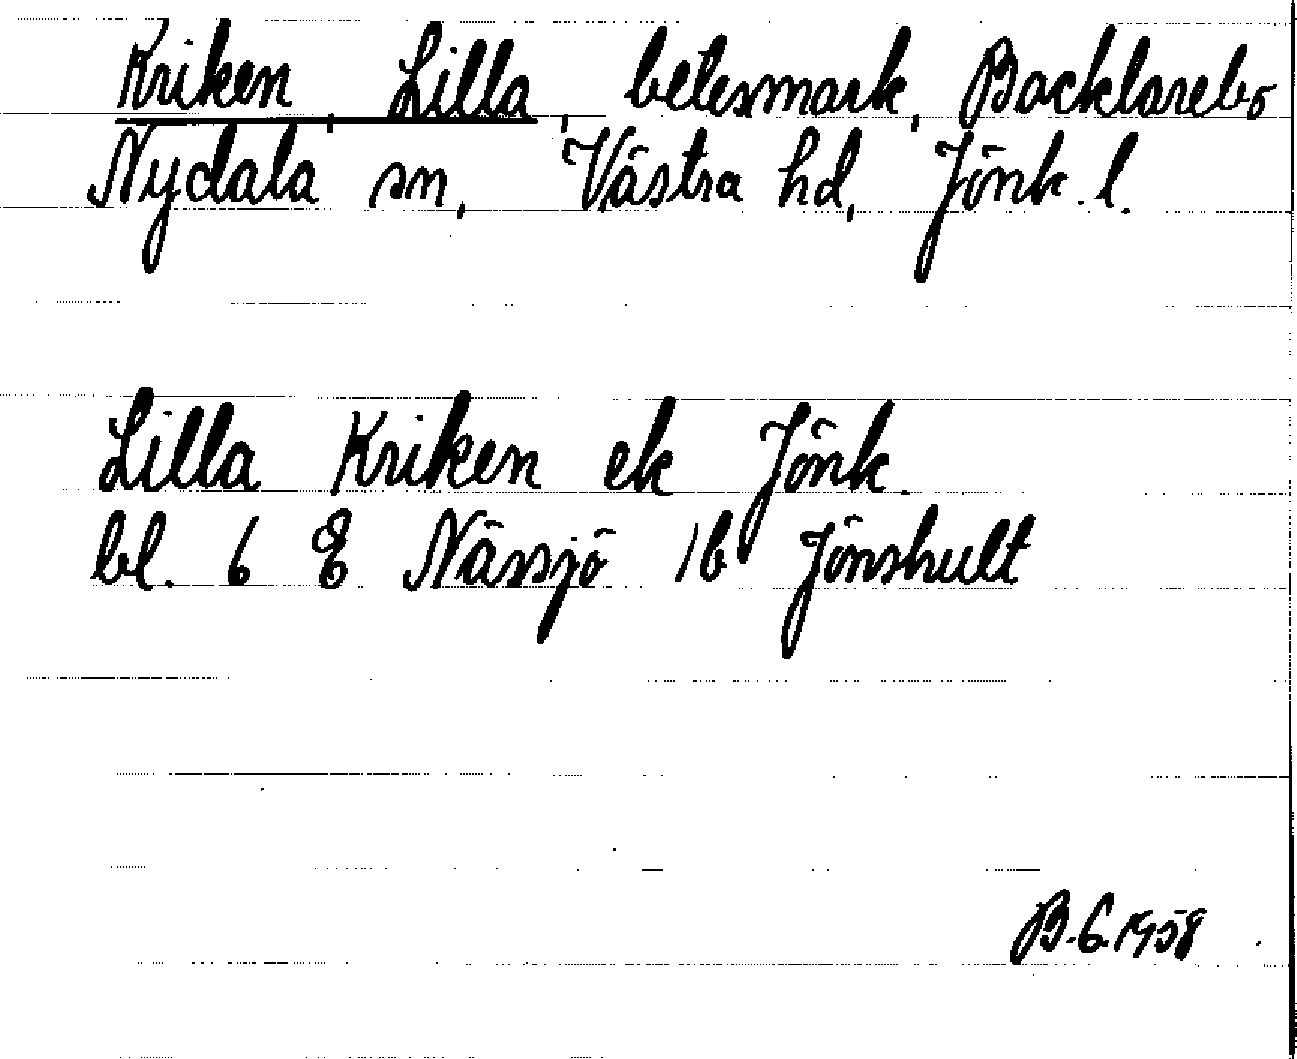 Kriken, Lilla, betesmark, Bocklarebo
Nydala sn, Västra hd, Jönk. l.
Lilla Kriken ek Jönk.
bl. 6 E Nässjö 1b Jönshult
B.G. 1958